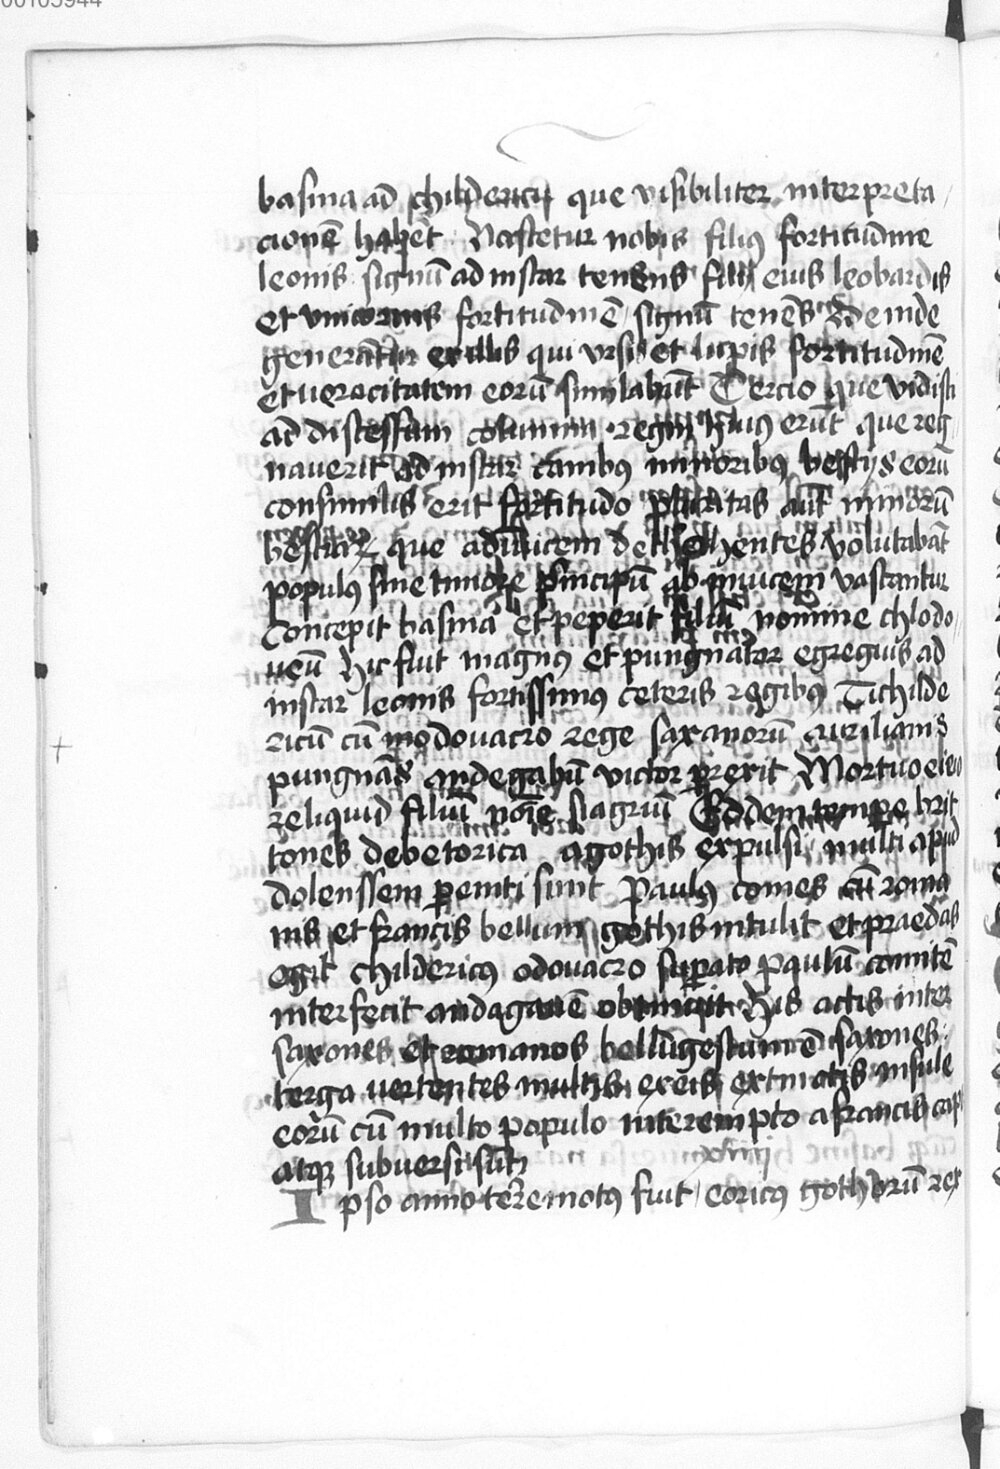 00105944
basina ad childericū que visibiliter interpreta
cionē habēt Nascetur nobis filiꝰ fortitudine
leonis signū ad instar tenens filii eius leobardis
et vnicornis fortitudinē signū tenēs Deinde
generātur ex illis qui vrsis et lupis fortitudinē
et uoracitatem eorū similabūt Tercio que vidisti
ad discessum columnū regni huiꝰ erūt que reg
nauerit ad instar canibꝰ minoribꝰ bestiis eorū
consimilis erit fortitudo pluritas aūt minorū
bestiarꝝ que aduīicem detrahentes volutabāt
populꝰ sine timore principū ab inuicem vastantur
Concepit basina et peperit filiū nomine chlodo
ueū Hic fuit magnꝰ et pungnator egregius ad
instar leonis fortissimꝰ ceteris regibꝰ Childe
ricū cū odouacro rege saxanorū
pungnās andegabū victor prexit Mortuo
reliquid filiū noīe siagriū Eodem tempe brit
tones debetorica agothis expulsi multi apud
dolenssem pemti sunt paulꝰ comes cū roma
nis et francis bellum gothis intulit et praedas
egit childericꝰ odouacro supato paulū comitē
interfecit andagauē obtinuit His actis inter
saxones et romanos bellūgestum ē saxones
terga uertentes multis exeis extinctis insule
eorū cū multo populo interempto afrancis cap
atqꝫ subuersi sūt
xviiij
Ipso anno teremotꝰ fuit eoricꝰ gothorū rex